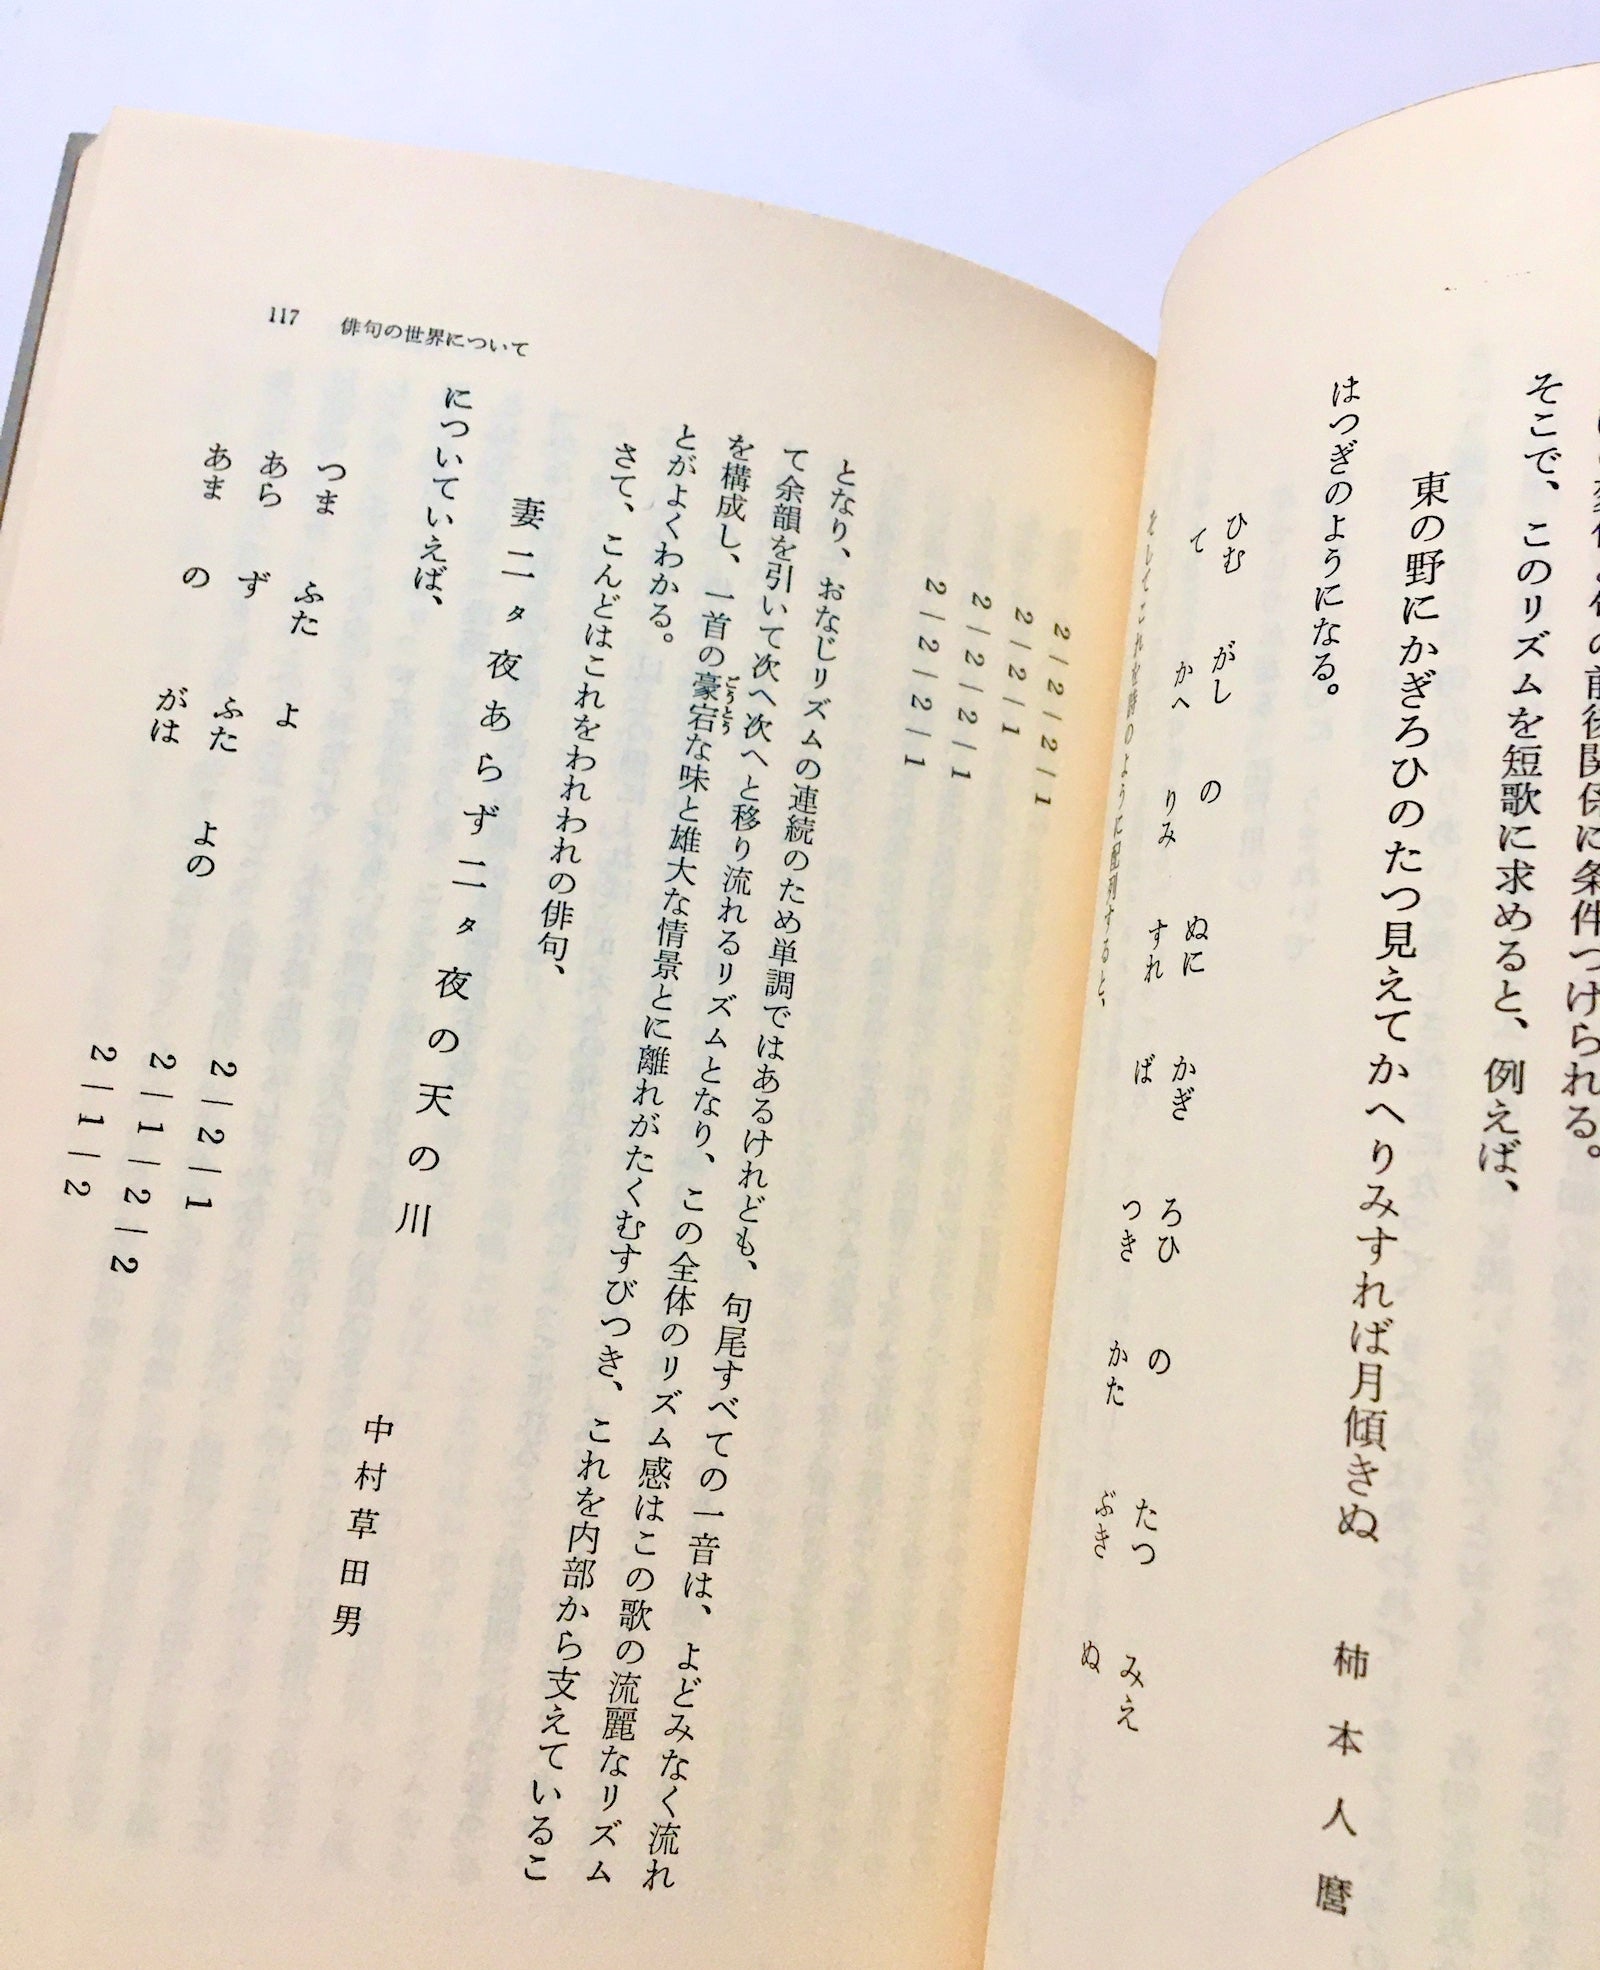 そこで、このリズムを短歌に求めると、例えば、
東の野にかぎろひのたつ見えてかへりみすれば月傾きぬ　柿本人麿
はつぎのようになる。
ひむ　がし　の　ぬに　かぎ　ろひ　の　たつ　みえ
て　かへ　りみ　すれ　ば　つき　かた　ぶき　ぬ
2―2―2―1
2―2―1
2―2―2―1
2―2―2―1
となり、おなじリズムの連続のため単調ではあるけれども、句尾すべての一音は、よどみなく流れ
て余韻を引いて次へ次へと移り流れるリズムとなり、この全体のリズム感はこの歌の流麗なリズム
を構成し、一首の豪宕な味と雄大な情景とに離れがたくむすびつき、これを内部から支えているこ
とがよくわかる。
さて、こんどはこれをわれわれの俳句、
妻二タ夜あらず二タ夜の天の川
中村草田男
についていえば、
つま　ふた　よ　2―2―1
あら　ず　ふた　よの　2―1―2―2
あま　の　がは　2―1―2
117　俳句の世界について